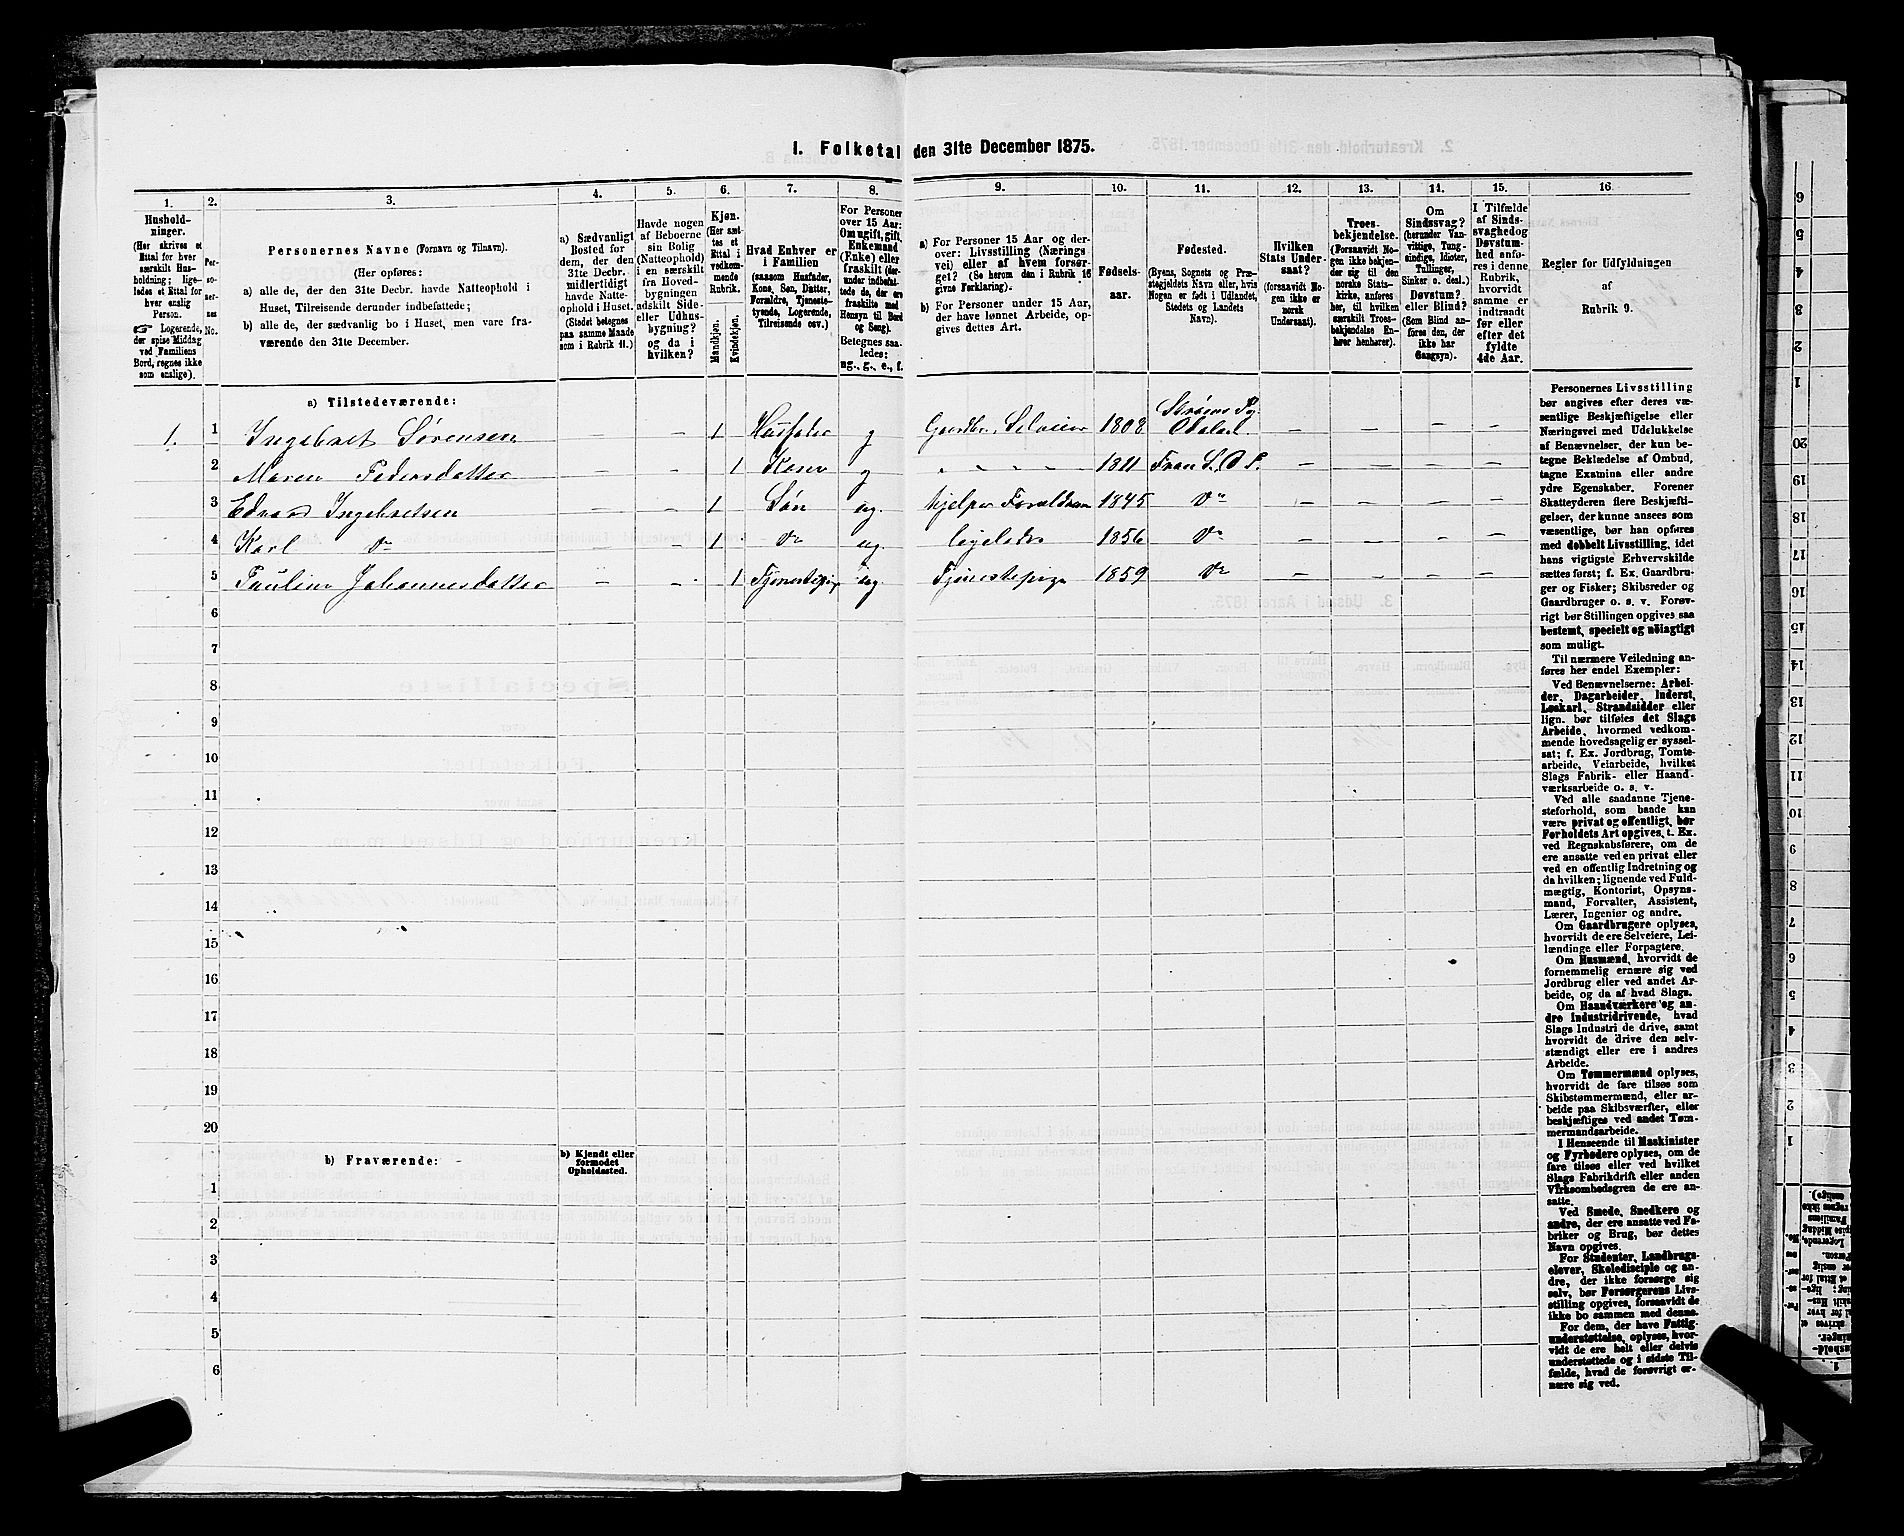 I. Folketal den 31te December 1875.
1. 2. 3. 4. 5. 6. 7. 8. 9. 10. 11. 12. 13. 14. 15. 16.
Hushold-
ninger.
(Her skrives et
Ettal for hver
særskilt Hus-
holdning; lige-
ledes et Ettal for
hver enslig
Person.
☞ Logerende,
der spise Middag
ved Familiens
Bord, regnes ikke
som enslige).
Per-
so-
ner-
nes
No.
Personernes Navne (Fornavn og Tilnavn).
(Her opføres:
a) alle de, der den 31te Decbr. havde Natteophold i
Huset, Tilreisende derunder indbefattede;
b) alle de, der sædvanlig bo i Huset, men vare fra-
værende den 31te December.
a) Sædvanligt
Bosted for
dem, der den
31te Decbr.
midlertidigt
havde Natte-
ophold i Huset.
(Stedet betegnes
paa samme Maade
som i Rubrik 11.)
Havde nogen
af Beboerne
sin Bolig
(Natteophold)
i en særskilt
fra Hoved-
bygningen
adskilt Side
eller Udhus-
bygning?
og da i
hvilken?
Kjøn.
(Her sæt-
tes et
Ettal i
vedkom-
mende
Rubrik.
Mandkjøn.
Kvindekjøn.
Hvad Enhver er
i Familien
(saasom Husfader,
Kone, Søn, Datter,
Forældre, Tjeneste-
tyende, Logerende,
Tilreisende osv.)
For Personer
over 15 Aar:
Om ugift, gift,
Enkemand
(Enke) eller
fraskilt (der-
under indbefat-
tede de, der ere
fraskilte med
Hensyn til Bord
og Seng).
Betegnes saa-
ledes:
ug., g., e., f.
a) For Personer 15 Aar og der-
over: Livsstilling (Nærings
vei) eller af hvem forsør-
get? (Se herom den i Rubrik 16
givne Forklaring).
b) For Personer under 15 Aar,
der have lønnet Arbeide, op-
gives dettes Art.
Fødsels-
aar.
Fødested.
(Byens, Sognets og Præ-
stegjeldets Navn eller, hvis
Nogen er født i Udlandet,
Stedets og Landets
Navn).
Hvilken
Stats Under-
saat?
(forsaavidt No-
gen ikke er
norsk
Undersaat).
Troes-
bekjendelse.
(Forsaavidt No-
gen ikke bekjen-
der sig til den
norske Stats-
kirke, anføres
her, til hvilken
særskilt Troes-
bekjendelse En-
hver henhører).
Om
Sindssvag?
(herunder Van-
vittige, Tung-
sindige, Idioter,
Tullinger,
Sinker o. desl.)
Døvstum?
eller Blind?
(Som Blind an-
føres den, der
ikke har
Gangsyn).
I Tilfælde
af Sinds-
svaghed og
Døvstum-
hed anfø-
res i denne
Rubrik,
hvorvidt
samme er
indtraadt
før eller
efter det
fyldte
4de Aar.
Regler for Udfyldningen
af
Rubrik 9.
a) Tilstedeværende:
1. 1 Ingebret Sørensen – – 1 Husfader g Gaardbr. Selveier 1808 Strøms Pg. Odalen – – – –
2 Maren Pedersdatter – – 1 Kone g " " " " 1811 – – – –
3 Edvard Ingebretsen – – 1 Søn ug. hjelper Forældrene 1845 do – – – –
4 Karl do – – 1 do ug. ligeledes 1856 do – – – –
5 Pauline Johannesdatter – – 1 Tjenestepige ug Tjenestepige 1859 do – – – –
6
7
8
9
10
11
12
13
14
15
16
17
18
19
20
b) Fraværende:
b) Kjendt eller
formodet
Opholdssted.
1
2
3
4
5
6
Personernes Livsstilling
bør angives efter deres væ-
sentlige Beskjæftigelse eller
Næringsvei med Udelukkelse
af Benævnelser, der kun be-
tegne Beklædelse af Ombud,
tagne Examina eller andre
ydre Egenskaber. Forener
Skatteyderen flere Beskjæfti-
gelser, der kunne ansees som
væsentlige, bør han opføres
med dobbelt Livsstilling, idet
hans vigtigste Erhvervskilde
sættes først; f. Ex. Gaardbru-
ger og Fisker; Skibsreder og
Gaardbruger o. s. v. Forøv-
rigt bør Stillingen opgives saa
bestemt, specielt og nøiagtigt
som muligt.
Til nærmere Veiledning an-
føres her endel Exempler:
Ved Benævnelserne: Arbei-
der, Dagarbeider, Inderst,
Løskarl, Strandsidder eller
lign. bør tilføies det Slags
Arbeide, hvormed vedkom-
mende hovedsagelig er syssel-
sat; f. Ex. Jordbrug, Tomte-
arbeide, Veiarbeide, hvilket
Slags Fabrik- eller Haand-
værksarbeide o. s. v.
Ved alle saadanne Tjene-
steforhold, som baade kan
være privat og offentligt, bør
Forholdets Art opgives, t. Ex.
ved Regnskabsførere, om de
ere ansatte ved en privat eller
ved en offentlig Indretning og
da hvilken; lignende ved Fuld-
mægtig, Kontorist, Opsyns-
mand, Forvalter, Assistent,
Lærer, Ingeniør og andre.
Om Gaardbrugere oplyses,
hvorvidt de ere Selveiere, Lei-
lændinge eller Forpagtere.
Om Husmænd, hvorvidt de
fornemmelig ernære sig ved
Jordbrug eller ved andet Ar-
beide, og da af hvad Slags.
Om Haandværkere og an-
dre Industridrivende, hvad
Slags Industri de drive, samt
hvorvidt de drive den selv-
stændigt eller ere i andres
Arbeide.
Om Tømmermænd oplyses,
hvorvidt de fare tilsøs som
Skibstømmermænd, eller ar-
beide paa Skibsværfter, eller
beskjæftiges ved andet Tøm-
mermandsarbeide.
I Henseende til Maskinister
og Fyrbødere oplyses, om de
fare tilsøs eller ved hvilket
Slags Fabrikdrift eller anden
Virksomhedsgren de ere an-
satte.
Ved Smede, Snedkere og
andre, der ere ansatte ved Fa-
briker og Brug, bør dettes
Navn opgives.
For Studenter, Landbrugs-
elever, Skoledisciple og an-
dre, der ikke forsørge sig
selv, bør Forsørgerens Livs-
stilling opgives, forsaavidt de
ikke bo sammen med denne.
For dem, der have Fattig-
understøttelse, oplyses, hvor-
vidt de ere helt eller delvis
understøttede og i sidste Til-
fælde, hvad de forøvrigt er-
nære sig ved.